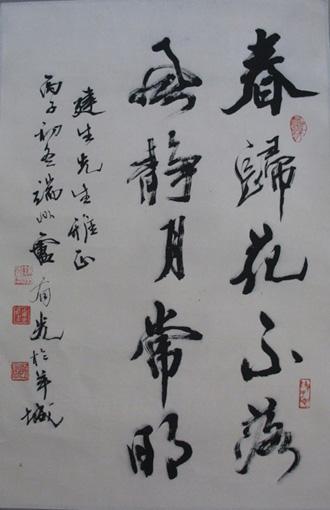 春歸花不落
風靜月常明
建生先生雅正
丙子初冬端州有光於羊城